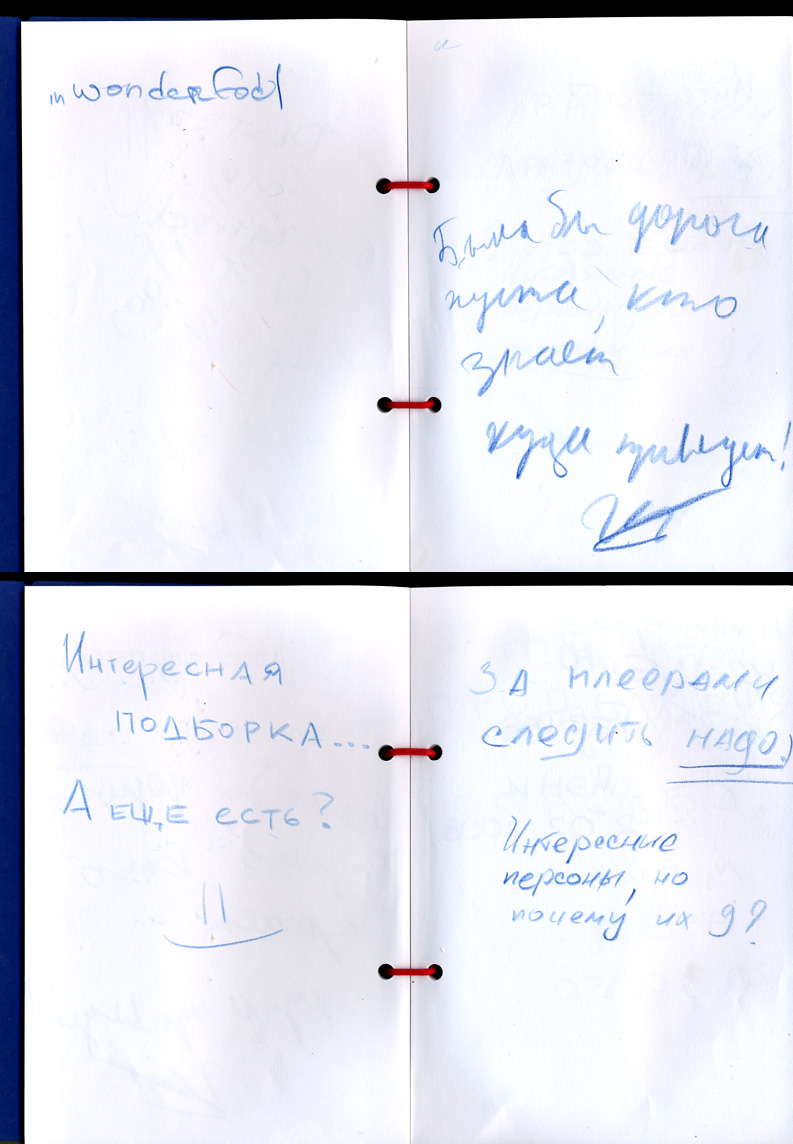 in wonderfool
Была бы дорога
пуста, кто
знает
куда приведет!
Интересная
ПОДБОРКА...
А ЕЩЕ ЕСТЬ?
ЗА плеерами
следить НАДО)
Интересние
персоны, но
почему их 9?